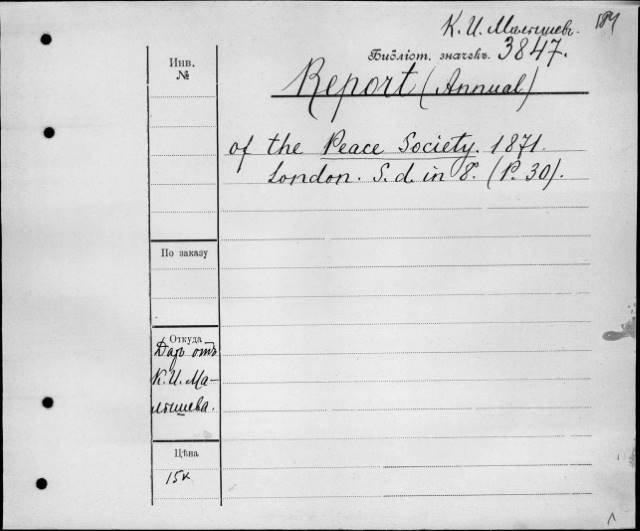 К. И. Малышевъ.
184
Библіот. значекъ. 3847.
Инв.
№
Report (Annual)
of the Peace Society. 1871.
London. S. d. in 8°. (P. 30).
По заказу
Откуда
Даръ отъ
К. И. Ма-
лышева.
Цѣна
15к